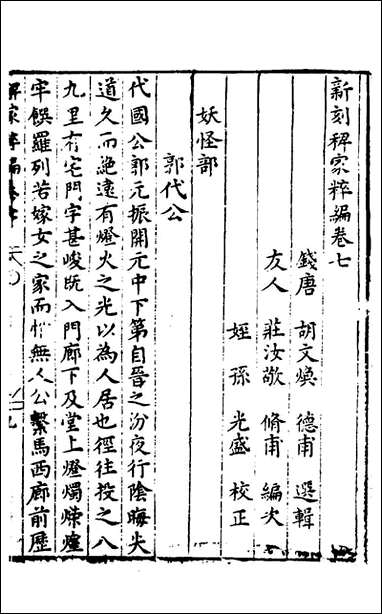 新刻稗家粹編卷七
錢唐 胡文煥 德甫 選輯
友人 莊汝敬 脩甫 編次
姪孫 光盛 校正
妖怪部
郭代公
代國公郭元振開元中下第自晉之汾夜行陰晦失
道久而絶遠有燈火之光以為人居也徑往投之八
九里有宅門宇甚峻旣入門廊下及堂上燈燭熒煌
牢饌羅列若嫁女之家而悄無人公繫馬西廊前歷